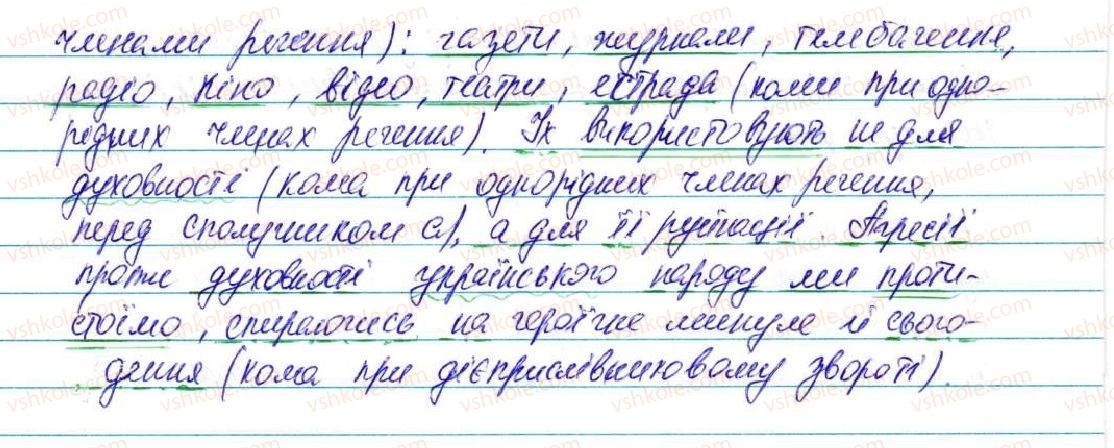 членами речення): газети, журнали, телебачення,
радіо, кіно, відео, театри, естрада (коми при одно-
рідних членах речення). Їх використовують не для
духовності (кома при однорідних членах речення,
перед сполучником а), а для її руйнації. Агресії
проти духовності українського народу ми проти-
стоїмо, спираючись на героїчне минуле й сього-
дення (кома при дієприслівниковому звороті).